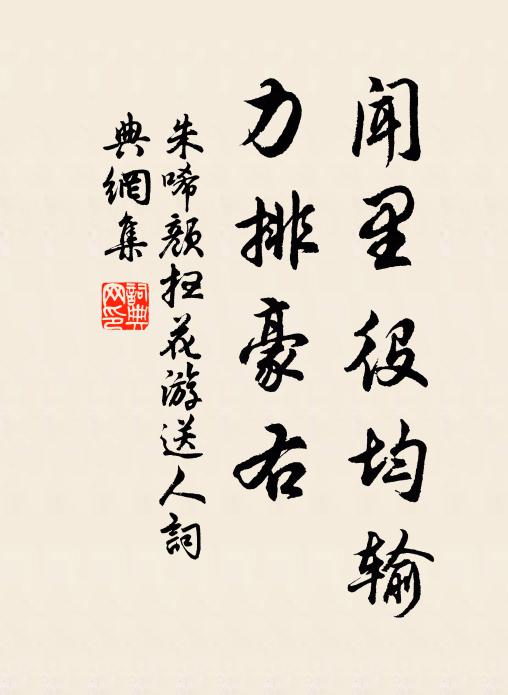 闻里役均输
力排豪右
朱唏颜扫花游送人词
典網集
詞典网印